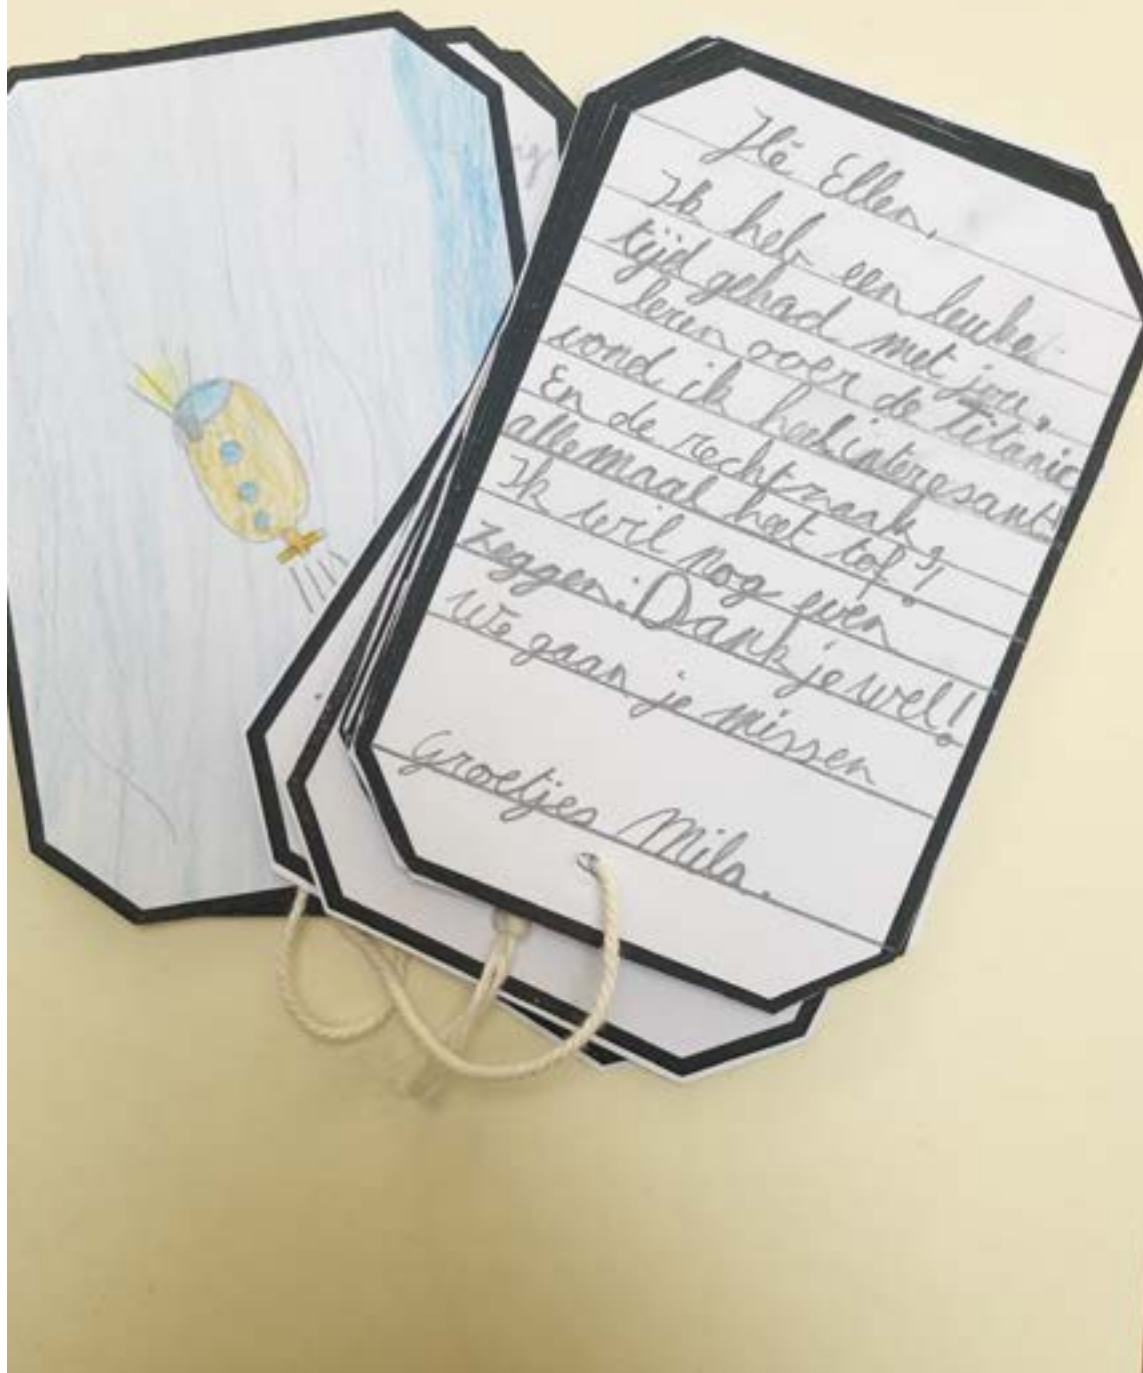 Hé Ellen,
Ik heb een leuke
tijd gehad met jou,
leren over de Titanic
vond ik heel interesant!
En de rechtzaak,
allemaal heel top!
Ik wil nog even
zeggen: Dankjewel!
We gaan je missen
Groetjes Mila.